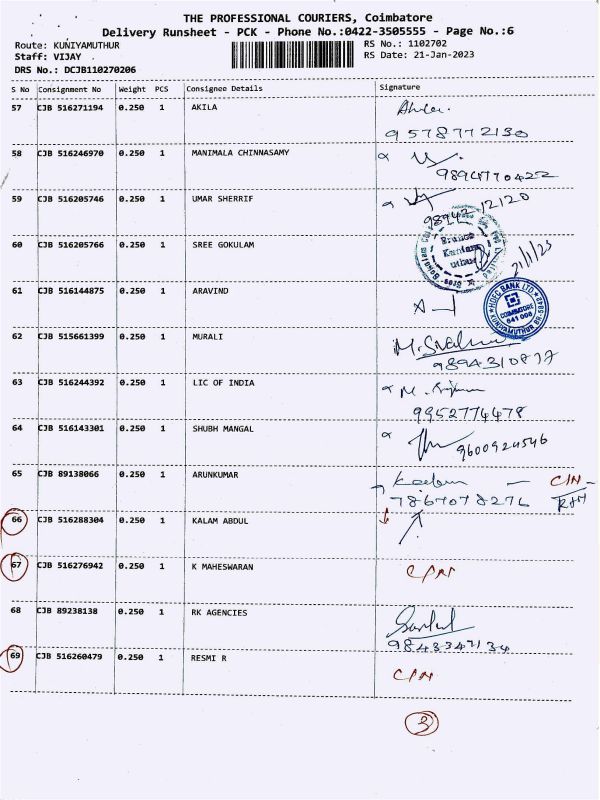 THE PROFESSIONAL COURIERS, Coimbatore
Delivery Runsheet - PCK - Phone No.:0422-3505555 - Page No.:6
Route: KUNIYAMUTHUR RS No.: 1102702
Staff: VIJAY . RS Date: 21-Jan-2023
DRS No.: DCJB110270206
S No Consignment No Weight PCS Consignee Details Signature
57 CJB 516271194 0.250 1 AKILA
9578772130
58 CJB 516246970 0.250 1 MANIMALA CHINNASAMY
9894770422
59 CJB 516205746 0.250 1 UMAR SHERRIF
98942 12120
60 CJB 516205766 0.250 1 SREE GOKULAM
Branch
21/1/23
61 CJB 516144875 0.250 1 ARAVIND
HDFC BANK LTD
COIMBATORE
641 008
KUNIYAMUTHUR
62 CJB 515661399 0.250 1 MURALI
9894310877
63 CJB 516244392 0.250 1 LIC OF INDIA
9952774478
64 CJB 516143301 0.250 1 SHUBH MANGAL
9600924546
65 CJB 89138066 0.250 1 ARUNKUMAR
7867078276
66 CJB 516288304 0.250 1 KALAM ABDUL
67 CJB 516276942 0.250 1 K MAHESWARAN
68 CJB 89238138 0.250 1 RK AGENCIES
9843347134
69 CJB 516260479 0.250 1 RESMI R
3